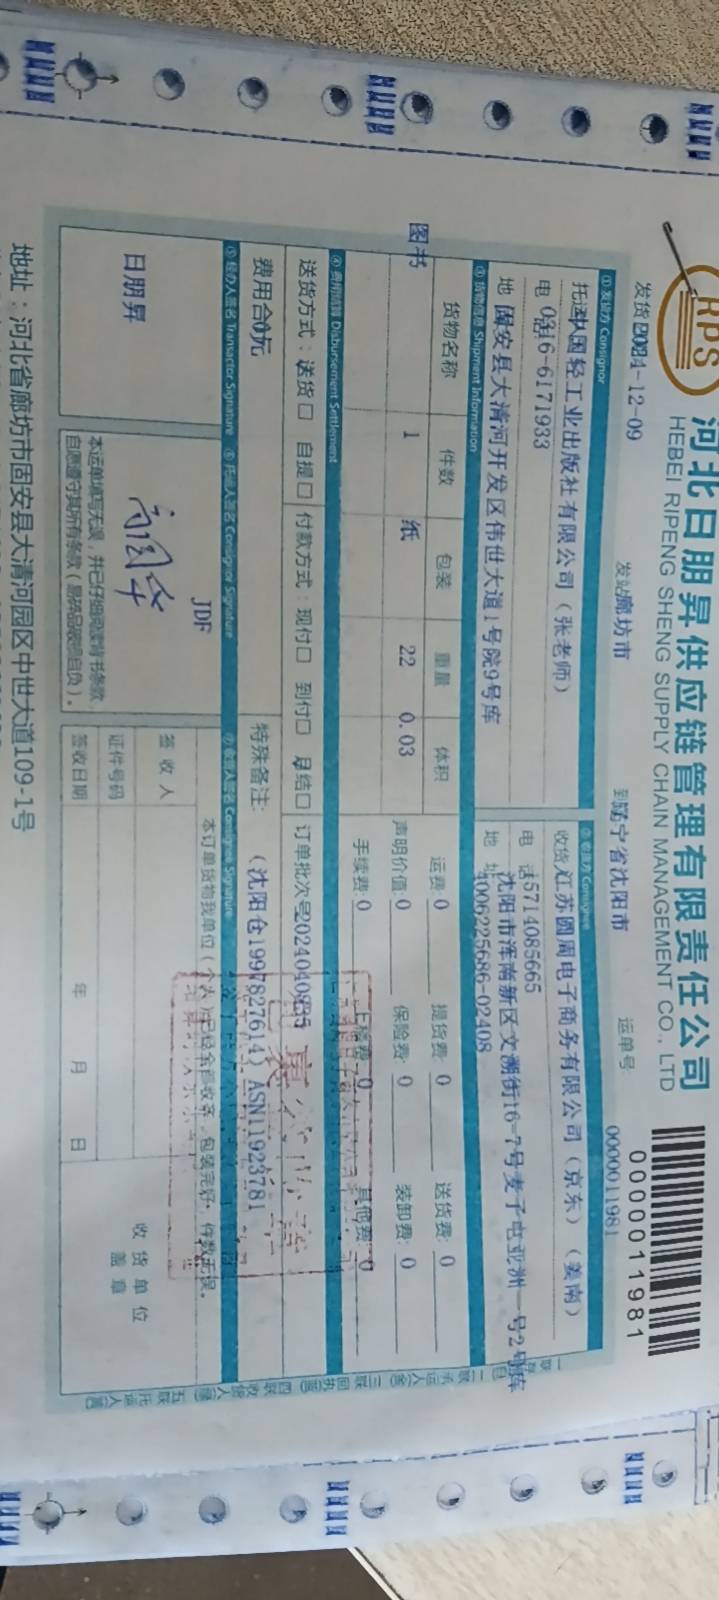 RPS
河北日朋昇供应链管理有限责任公司
HEBEI RIPENG SHENG SUPPLY CHAIN MANAGEMENT CO., LTD
0000011981
发货 2024-12-09 发站廊坊市 到 辽宁省沈阳市 运单号 0000011981
①发货方 Consignor
托运 中国轻工业出版社有限公司（张老师）
电 话 0316-6171933
地 固安县大清河开发区伟世大道1号院9号库
②收货方 Consignee
收货 江苏圆周电子商务有限公司（京东）（姜南）
电 话 15714085665
地 址 沈阳市浑南新区文溯街16-7号麦子屯亚洲一号2号库
4006225686-02408
③货物信息 Shipment Information
货物名称 件数 包装 重量 体积
图书 1 纸 22 0.03
运费:0 提货费: 0 送货费: 0
声明价值:0 保险费: 0 装卸费: 0
手续费:0 上楼费: 0 其他费: 0
④费用结算 Disbursement Settlement
送货方式：送货□ 自提□ 付款方式：现付□ 到付□ 月结□ 订单批次号
费用合 0元 特殊备注: （沈阳仓1997827614）ASN11923781
⑤经办人签名 Transactor Signature ⑥托运人签名 Consignor Signature ⑦收货人签名 Consignee Signature
日朋昇
JDF
本运单填写无误，并已仔细阅读背书条款，
自愿遵守其所有条款（易碎品破损自负）。
本订单货物我单位（个人）已经全部收齐，包装完好，件数无误。
签 收 人
证件号码
签收日期 年 月 日
收 货 单 位
盖 章
地址：河北省廊坊市固安县大清河园区中世大道109-1号